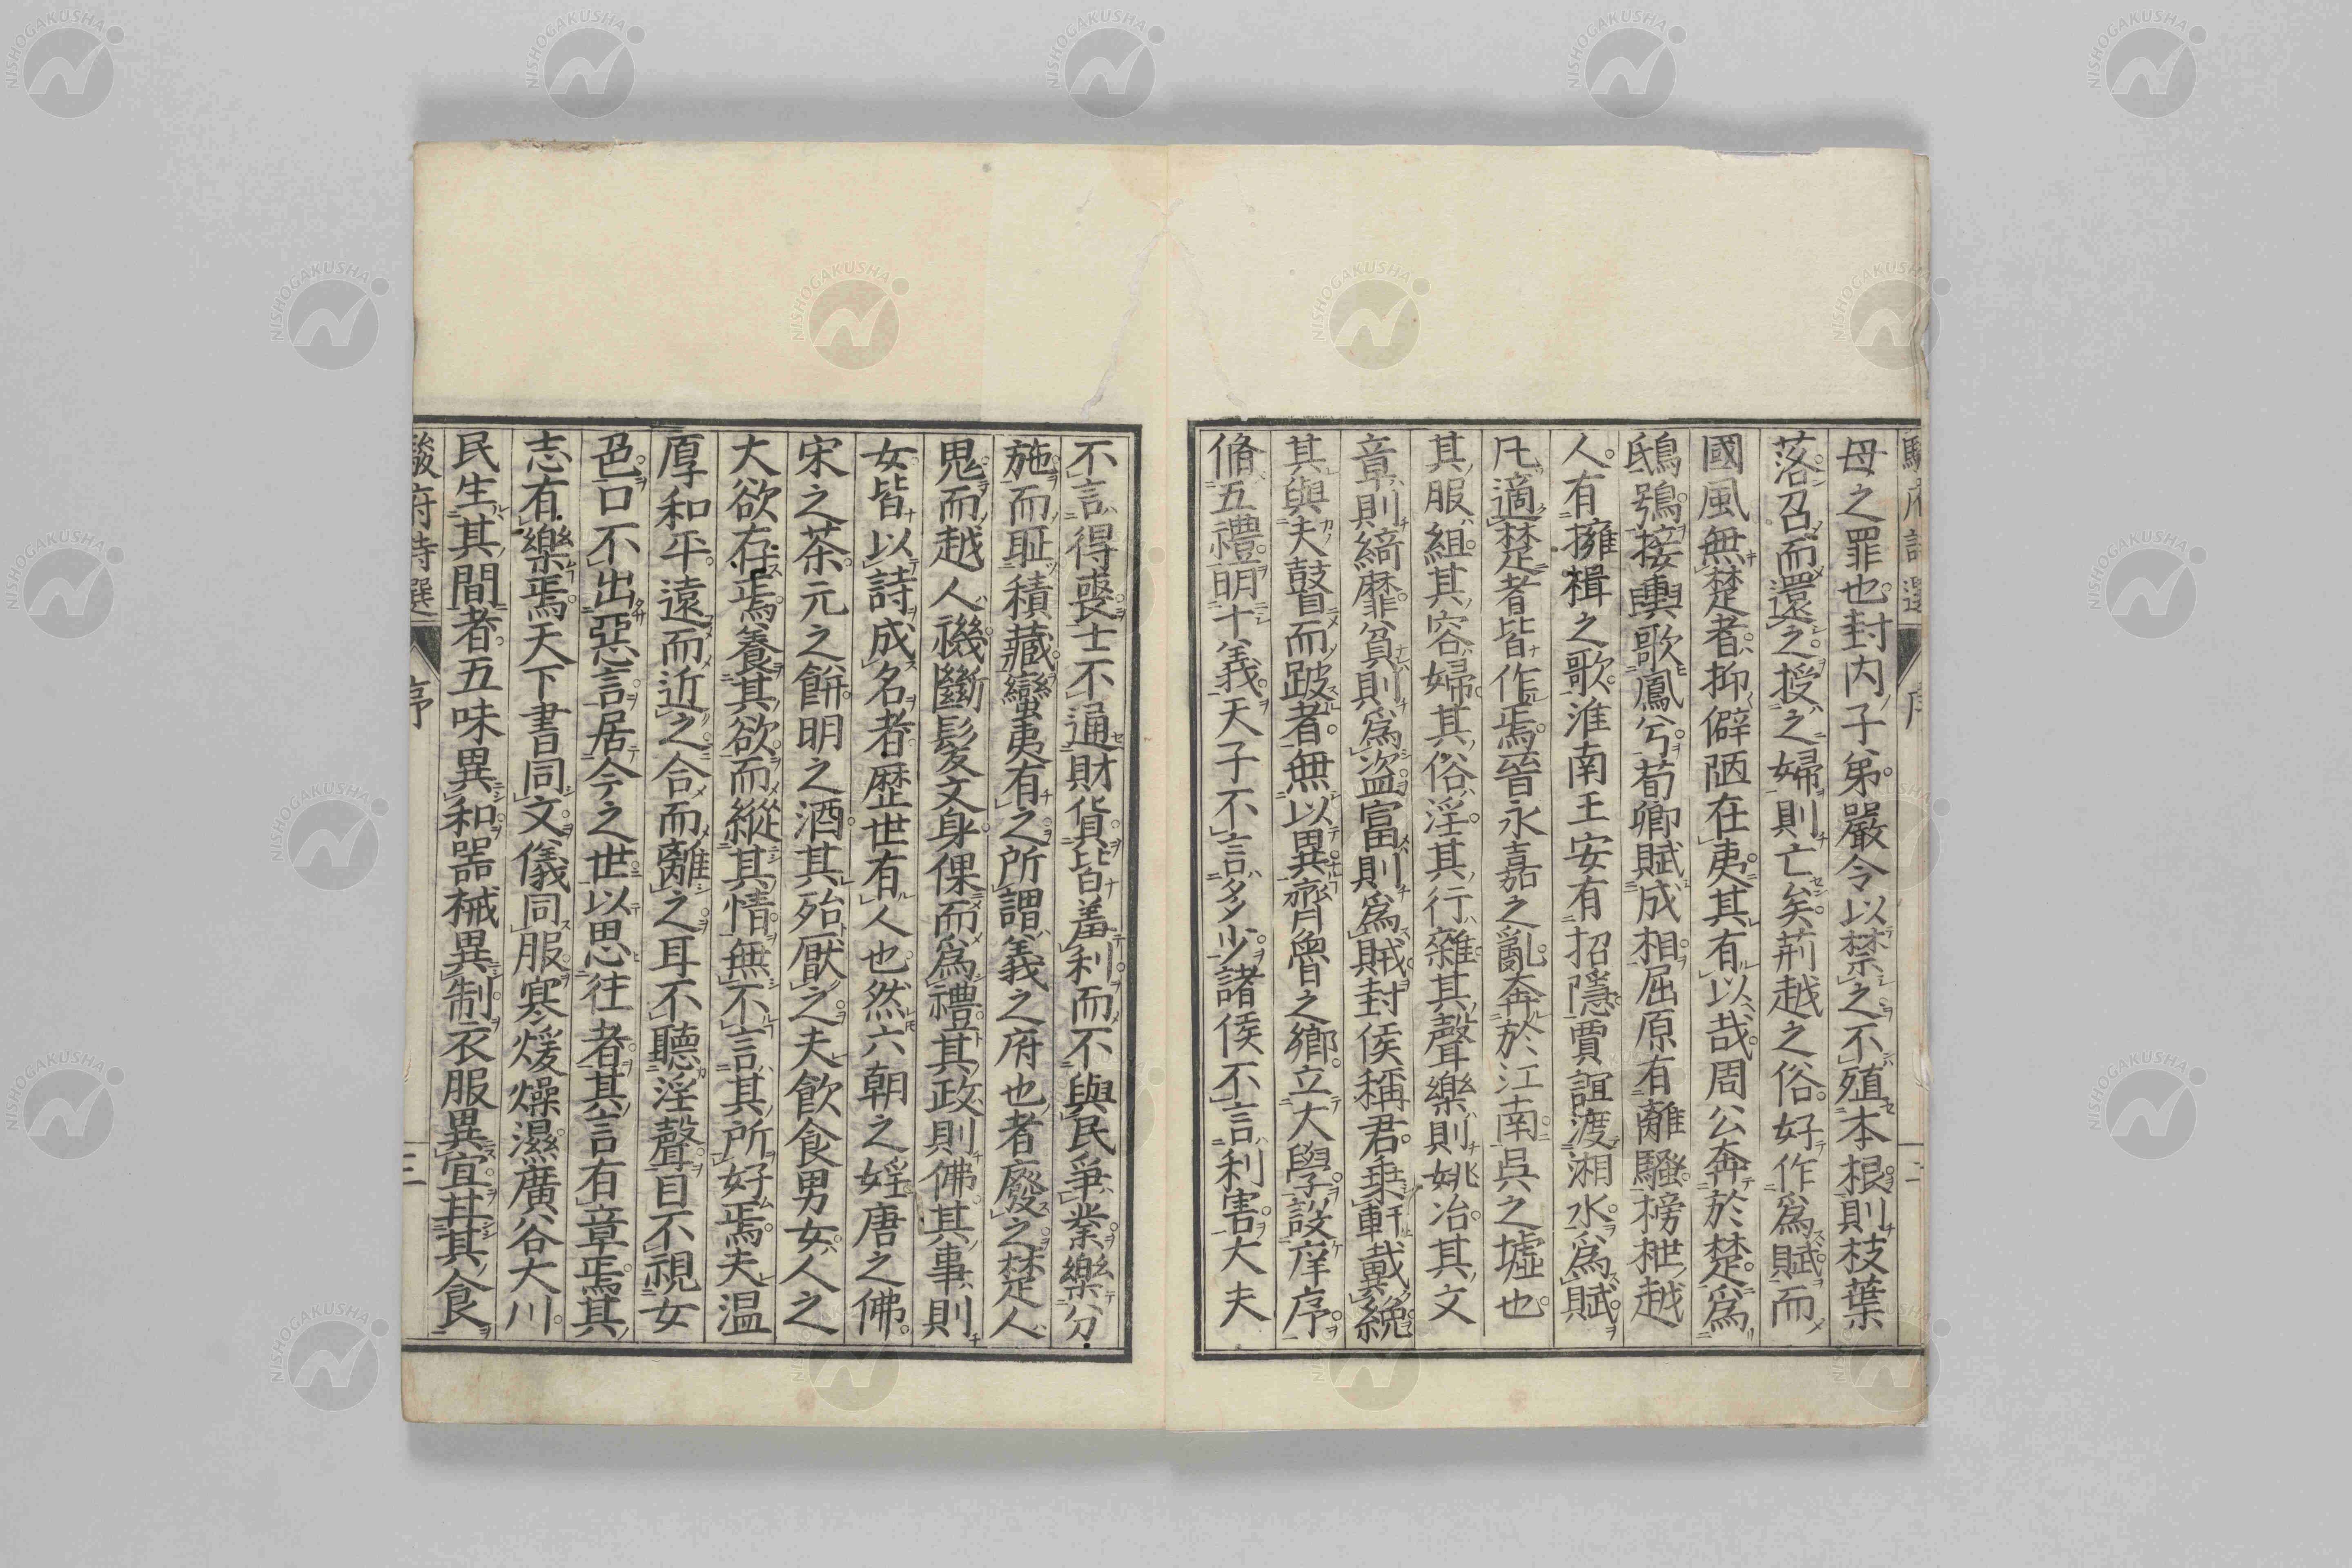 母之罪也封内子弟嚴令以禁之不殖本根則枝葉
落召而還之授之婦則亡矣荊越之俗好作爲賦而
國風無楚者抑僻陋在夷其有以哉周公奔於楚爲
鴟鴞接輿歌鳳兮荀卿賦成相屈原有離騷榜枻越
人有擁楫之歌淮南王安有招隱賈誼渡湘水爲賦
凡適楚者皆作焉晉永嘉之亂奔於江南吳之墟也
其服組其容婦其俗淫其行雜其聲樂則姚冶其文
章則綺靡貧則爲盜富則爲賊封侯稱君乗軒戴冕
其與夫瞽而跛者無以異齊魯之鄉立大學設庠序
脩五禮明十義天子不言多少諸侯不言利害大夫
不言得喪士不通財貨皆羞利而不與民爭業樂分
施而耻積藏蠻夷有之所謂義之府也者廢之楚人
鬼而越人禨斷髮文身倮而爲禮其政則佛其事則
女皆以詩成名者歷世有人也然六朝之婬唐之佛
宋之茶元之餅明之酒其殆厭之夫飲食男女人之
大欲存焉養其欲而縱其情無不言其所好焉夫温
厚和平遠而近之合而離之耳不聽淫聲目不視女
色口不出惡言居今之世以思往者其言有章焉其
志有樂焉天下書同文儀同服寒煖燥濕廣谷大川
民生其間者五味異和器械異制衣服異宜甘其食
駿府詩選 序 三